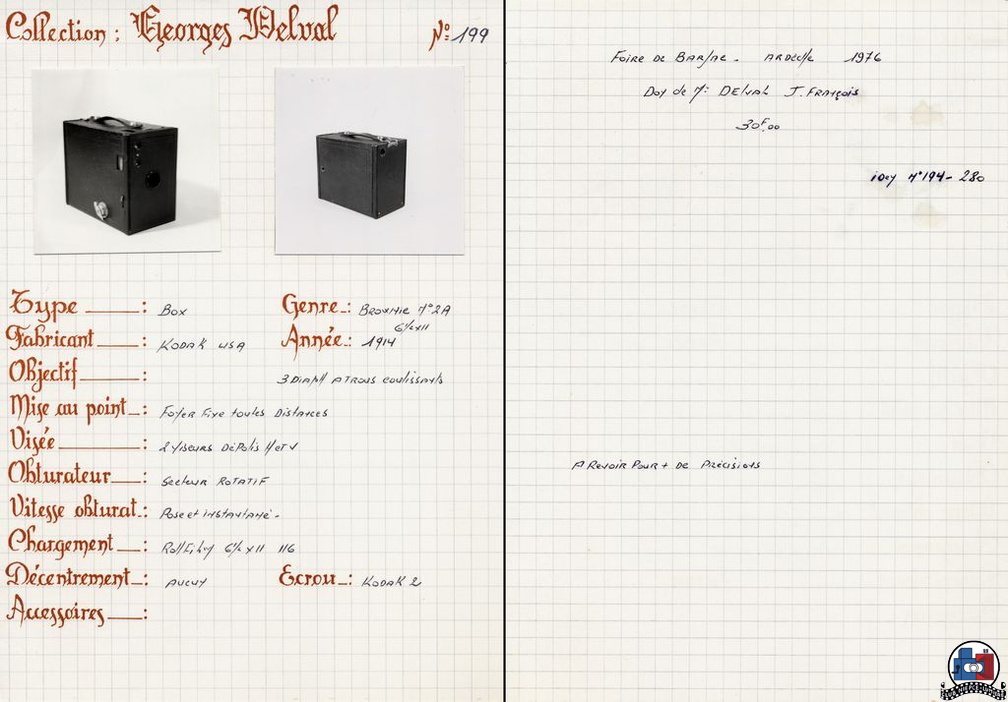 Collection : Georges Delval
Nº 199
Type : Box
Genre : Brownie n°2A
6½x11
Fabricant : Kodak USA
Année : 1914
Objectif : 3 Diaph A TROUS coulissants
Mise au point : Foyer Fixe toutes Distances
Visée : 2 Viseurs DéPolis H et V
Obturateur : Secteur ROTATIF
Vitesse obturat. : Pose et instantané -
Chargement : Roll Film 6½ x 11 116
Décentrement : Aucun
Ecrou : Kodak 2
Accessoires :
Foire de Barjac - ARDèche 1976
Don de Mr DELVAL J. François
30F,00
idem n°194 - 280
A Revoir Pour + de Précisions